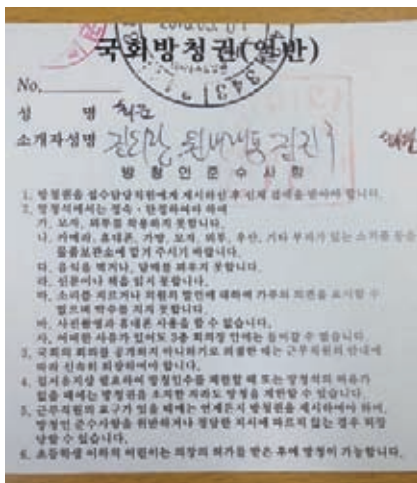 국회방청권(일반)
No.
성 명
소개자성명
방청인준수사항
1. 방청권을 접수담당직원에게 제시하신 후 신체 검색을 받아야 합니다.
2. 방청석에서는 정숙·단정하여야 하며
가. 모자, 외투를 착용하지 못합니다.
나. 카메라, 휴대폰, 가방, 모자, 외투, 우산, 기타 부피가 있는 소지품 등은
물품보관소에 맡겨 주시기 바랍니다.
다. 음식을 먹거나, 담배를 피우지 못합니다.
라. 신문이나 책을 읽지 못합니다.
마. 소리를 지르거나 의원의 발언에 대하여 가부의 의견을 표시할 수
없으며 박수를 치지 못합니다.
바. 사진촬영과 휴대폰 사용을 할 수 없습니다.
사. 어떠한 사유가 있어도 3층 회의장 안에는 들어갈 수 없습니다.
3. 국회의 회의를 공개하지 아니하기로 의결한 때는 근무직원의 안내에
따라 신속히 퇴장하여야 합니다.
4. 질서유지상 필요하여 방청인수를 제한할 때 또는 방청석의 여유가
없을 때에는 방청권을 소지한 자라도 방청을 제한할 수 있습니다.
5. 근무직원의 요구가 있을 때에는 언제든지 방청권을 제시하여야 하며,
방청인 준수사항을 위반하거나 정당한 지시에 따르지 않는 경우 퇴장
당할 수 있습니다.
6. 초등학생 이하의 어린이는 의장의 허가를 받은 후에 방청이 가능합니다.